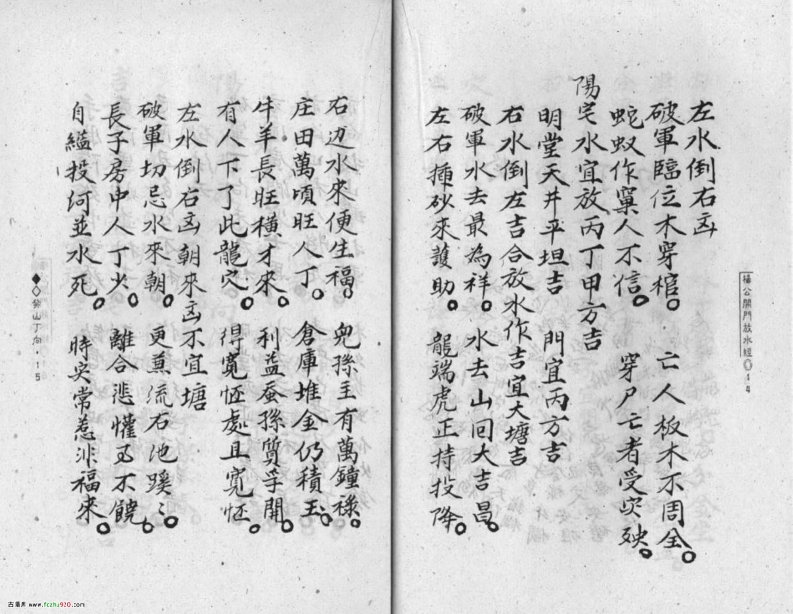 左水倒右凶
破軍臨位木穿棺。 亡人板木不周全。
蛇蚁作窠人不信。 穿尸亡者受灾殃。
陽宅水宜放丙丁甲方吉
明堂天井平坦吉 門宜丙方吉
右水倒左吉合放水作吉宜大塘吉
破軍水去最為祥。 水去山回大吉昌。
左右揷砂來護助。 龍端虎正持投降。
楊公開門放水經 14
右边水來便生福。 兒孫主有萬鐘祿。
庄田萬頃旺人丁。 倉庫堆金仍積玉。
牛羊長旺橫才來。 利益蚕孫質孚開。
有人下了此龍穴。 得寬怀處且寬怀。
左水倒右凶朝來凶不宜塘
破軍切忌水來朝。 更莫流石池蹊〻。
長子房中人丁少。 離合悲懽丑不饒。
自縊投河並水死。 時灾常惹非福來。
癸山丁向·15
古易库 www.fczhu920.com